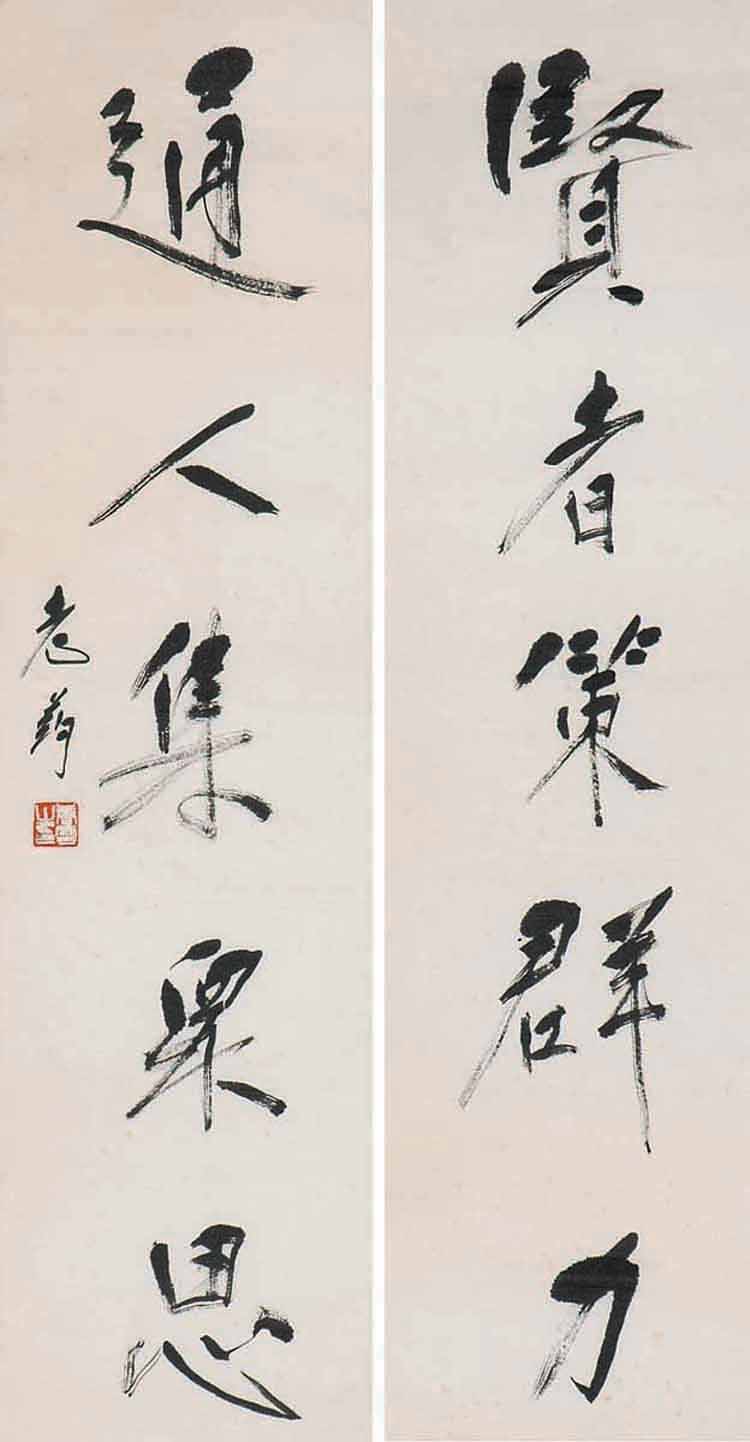 賢者策群力
通人集衆思
老葯